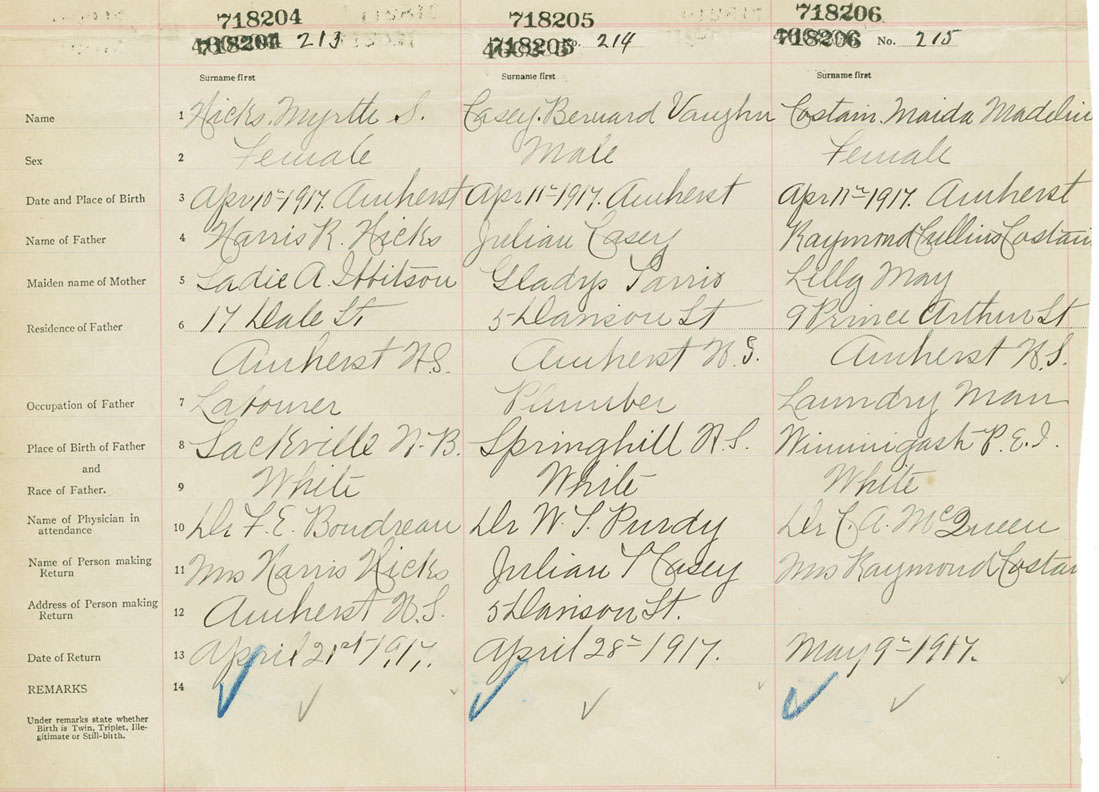 718204 718205 718206
718204 213 718205 No. 214 718206 No. 215
Surname first Surname first Surname first
Name 1 Hicks. Myrtle S. Casey. Bernard Vaughn Costain. Maida Madelin
Sex 2 Female Male Female
Date and Place of Birth 3 Apr 10th 1917. Amherst Apr 11th 1917. Amherst Apr 11th 1917. Amherst
Name of Father 4 Harris R. Hicks Julian Casey Raymond Cullins Costain
Maiden name of Mother 5 Sadie A. Ibbitson Gladys Lilly May
Residence of Father 6 17 Dale St. 5 Davison St 9 Prince Arthur St
Amherst N.S. Amherst N.S. Amherst N.S.
Occupation of Father 7 Labourer Plumber Laundry Man
Place of Birth of Father 8 Sackville N.B. Springhill N.S. P.E.I.
and
Race of Father. 9 White White White
Name of Physician in
attendance 10 Dr F. E. Boudreau Dr W. T. Purdy Dr C. A. McQueen
Name of Person making
Return 11 Mrs Harris Hicks Julian T Casey Mrs Raymond Costai
Address of Person making
Return 12 Amherst N.S. 5 Davison St.
Date of Return 13 April 21st 1917. April 28th 1917. May 9th 1917.
REMARKS 14
Under remarks state whether
Birth is Twin, Triplet, Ille-
gitimate or Still-birth.